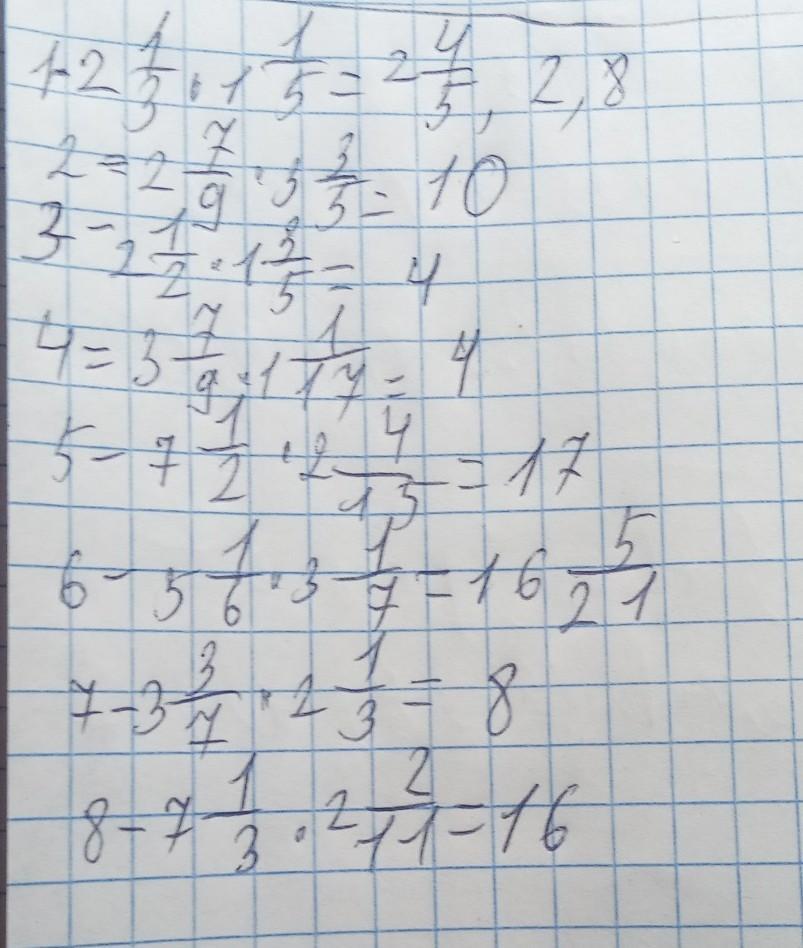 1-2 1/3 · 1 1/5 = 2 4/5, 2,8
2 = 2 7/9 · 3 3/5 = 10
3 - 2 1/2 · 1 3/5 = 4
4 = 3 7/9 · 1 1/17 = 4
5 - 7 1/2 · 2 4/15 = 17
6 - 5 1/6 · 3 1/7 = 16 5/21
7 - 3 3/7 · 2 1/3 = 8
8 - 7 1/3 · 2 2/11 = 16